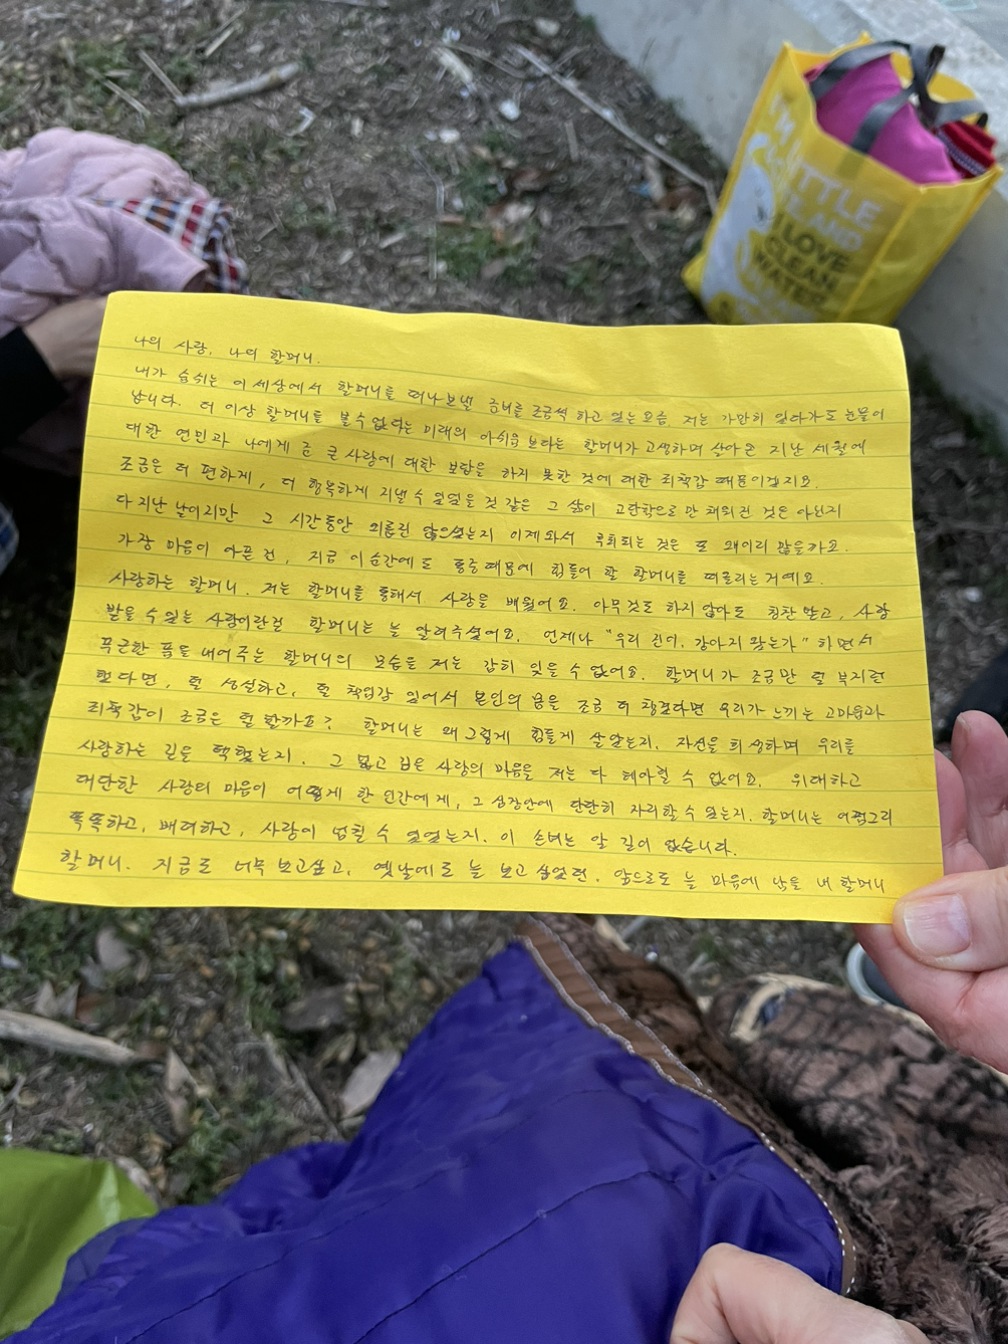 I'M
LITTLE
ISLAND
I LOVE
CLEAN
WATER
나의 사랑, 나의 할머니.
내가 숨쉬는 이 세상에서 할머니를 떠나보낼 준비를 조금씩 하고 있는 요즘, 저는 가만히 있다가도 눈물이
납니다. 더 이상 할머니를 볼 수 없다는 미래의 아쉬움보다는 할머니가 고생하며 살아온 지난 세월에
대한 연민과 나에게 준 큰 사랑에 대한 보답을 하지 못한 것에 대한 죄책감 때문이겠지요.
조금은 더 편하게, 더 행복하게 지낼 수 있었을 것 같은 그 삶이 고단함으로만 채워진 것은 아닌지
다 지난 날이지만 그 시간동안 외롭진 않으셨는지 이제와서 후회되는 것은 또 왜이리 많을까요.
가장 마음이 아픈 건, 지금 이 순간에도 통증때문에 힘들어 할 할머니를 떠올리는거예요.
사랑하는 할머니. 저는 할머니를 통해서 사랑을 배웠어요. 아무것도 하지 않아도 칭찬받고, 사랑
받을 수 있는 사람이란걸 할머니는 늘 알려주셨어요. 언제나 "우리 강아지 왔는가" 하면서
푸근한 품을 내어주는 할머니의 모습을 저는 감히 잊을 수 없어요. 할머니가 조금만 덜 부지런
했다면, 덜 성실하고, 덜 책임감 있어서 본인의 몸을 조금 더 챙겼다면 우리가 느끼는 고마움과
죄책감이 조금은 덜 할까요? 할머니는 왜 그렇게 힘들게 살았는지. 자신을 희생하며 우리를
사랑하는 길을 택했는지. 그 넓고 깊은 사랑의 마음을 저는 다 헤아릴 수 없어요. 위대하고
대단한 사랑의 마음이 어떻게 한 인간에게, 그 심장안에 단단히 자리할 수 있는지. 할머니는 어쩜그리
똑똑하고, 배려하고, 사랑이 넘칠 수 있었는지. 이 손녀는 알 길이 없습니다.
할머니. 지금도 너무 보고싶고, 옛날에도 늘 보고 싶었던, 앞으로도 늘 마음에 남을 내 할머니